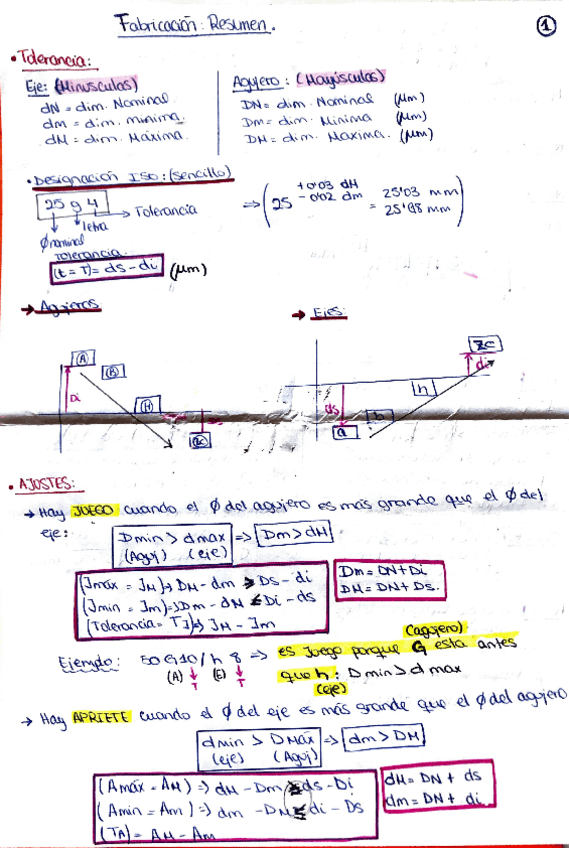 Fabricación: Resumen.
1
• Tolerancia:
Eje: (Minusculas)
dN = dim. Nominal.
dm = dim. minima.
dM = dim. Máxima.
Agujero: (Mayúsculas)
DN = dim. Nominal (μm)
Dm = dim. Minima (μm)
DM = dim. Maxima. (μm)
• Designación ISO: (sencillo)
25 g 4 → Tolerancia
letra
φ nominal
tolerancia.
(t = T) = ds - di (μm)
⇒ (25 +0'03 dM -0'02 dm = 25'03 mm 25'98 mm)
→ Agujeros
→ Ejes:
A
B
H
Di
ZC
zc
di
h
ds
b
a
• AJUSTES:
→ Hay JUEGO cuando el φ del agujero es más grande que el φ del
eje:
Dmin > dmax ⇒ Dm > dM
(Aguj) (eje)
(Jmáx = JM) ⇒ DM - dm ⇒ DS - di
(Jmin = Jm) ⇒ Dm - dM Di - ds
(Tolerancia = TJ) ⇒ JM - Jm
Dm = DN + Di
DM = DN + DS.
Ejemplo: 50 G10 / h 8 ⇒ es juego porque G esta antes
(agujero)
(A) T (E) T
que h: D min > d max
(eje)
→ Hay APRIETE cuando el φ del eje es más grande que el φ del agujero
dmin > DMáx ⇒ dm > DM
(eje) (Aguj)
(Amáx = AM) ⇒ dM - Dm ds - Di
(Amin = Am) ⇒ dm - DM di - DS
(TA) = AM - Am
dM = DN + ds
dm = DN + di